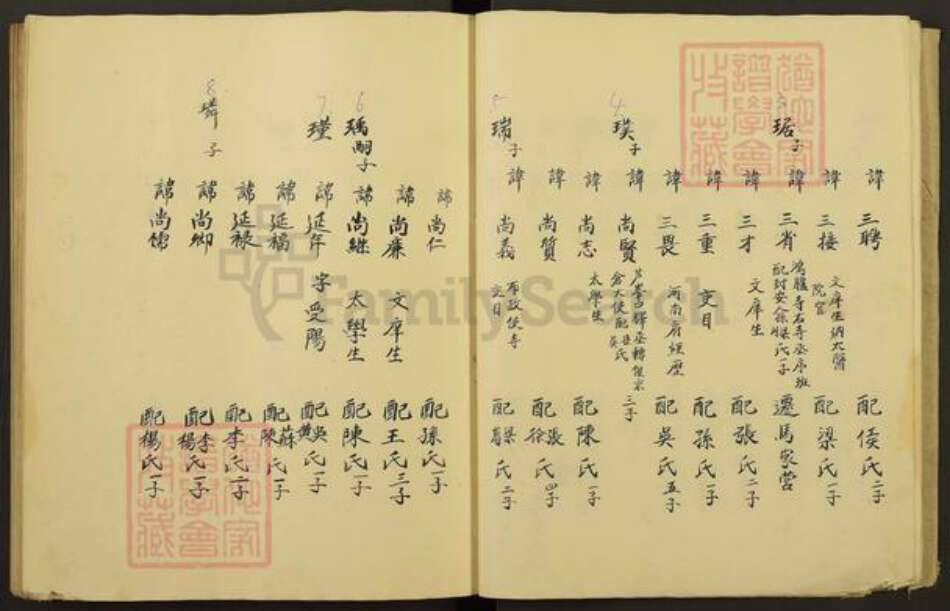 琚子
諱三聘 配侯氏二子
諱三接 文庠生納太醫院官 配梁氏一子
諱三省 鴻臚寺右寺丞序班 配封安人徐氏一子 遷馬家營
諱三才 文庠生 配張氏二子
諱三重 吏目 配孫氏一子
諱三畏 河南府經歷 配吳氏五子
4
璞子
諱尚賢 三子
諱尚志 太學生 配陳氏一子
諱尚質 配張徐氏四子
5
瑞子
諱尚義 布政使寺吏目 配梁葛氏二子
諱尚仁 配孫氏一子
諱尚廉 文庠生 配王氏三子
6
瑀嗣子
諱尚繼 太學生 配陳氏一子
7
瑾
諱延年 字受陽 配吳黄氏一子
諱延福 配蘇陳氏一子
諱延祿 配李氏二子
8
璘子
諱尚卿 配李楊氏一子
諱尚儒 配楊氏一子
FamilySearch